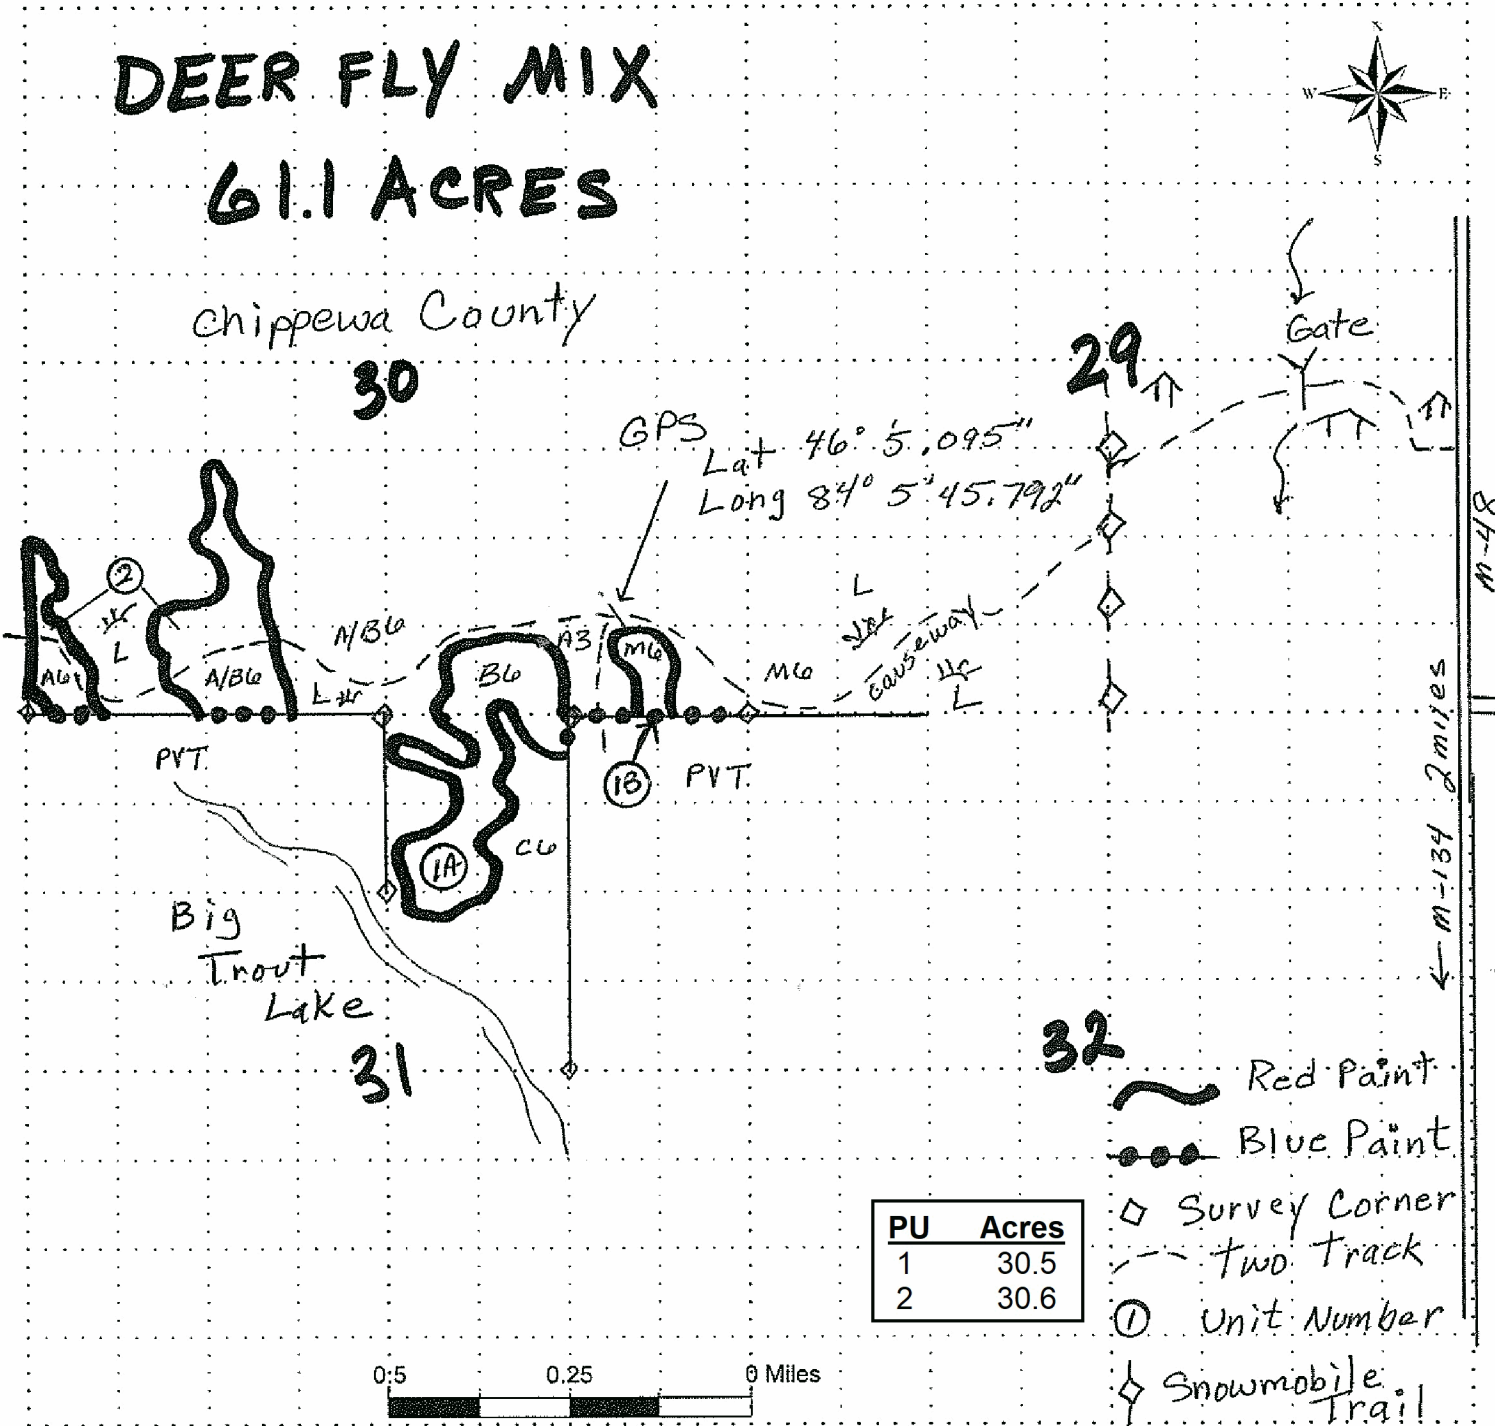 DEER FLY MIX
61.1 ACRES
Chippewa County
N
W E
S
30
29
Gate
GPS
Lat 46° 5' .095"
Long 84° 5' 45.792"
M-48
2
L
A6
A/B6
A/B6
L
B6
A3
M6
M6
L
causeway
L
PVT
1B
PVT
1A
C6
← M-134 2 miles
Big
Trout
Lake
31
32
Red Paint
Blue Paint
Survey Corner
Two Track
1 Unit Number
Snowmobile
Trail
PU Acres
1 30.5
2 30.6
0.5 0.25 0 Miles